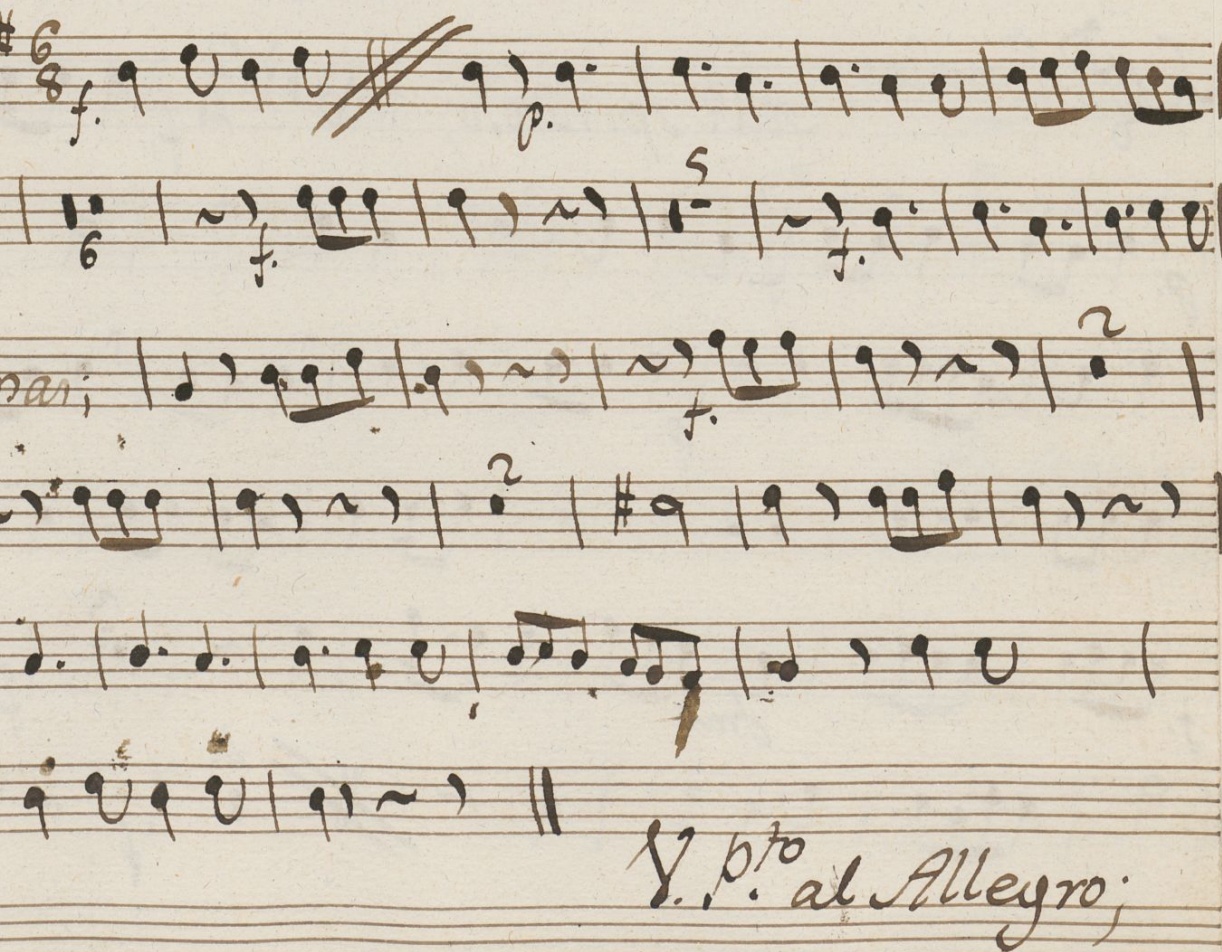 6
8
f. p.
5
6 f. f.
2
f.
2
V. p.to al Allegro;